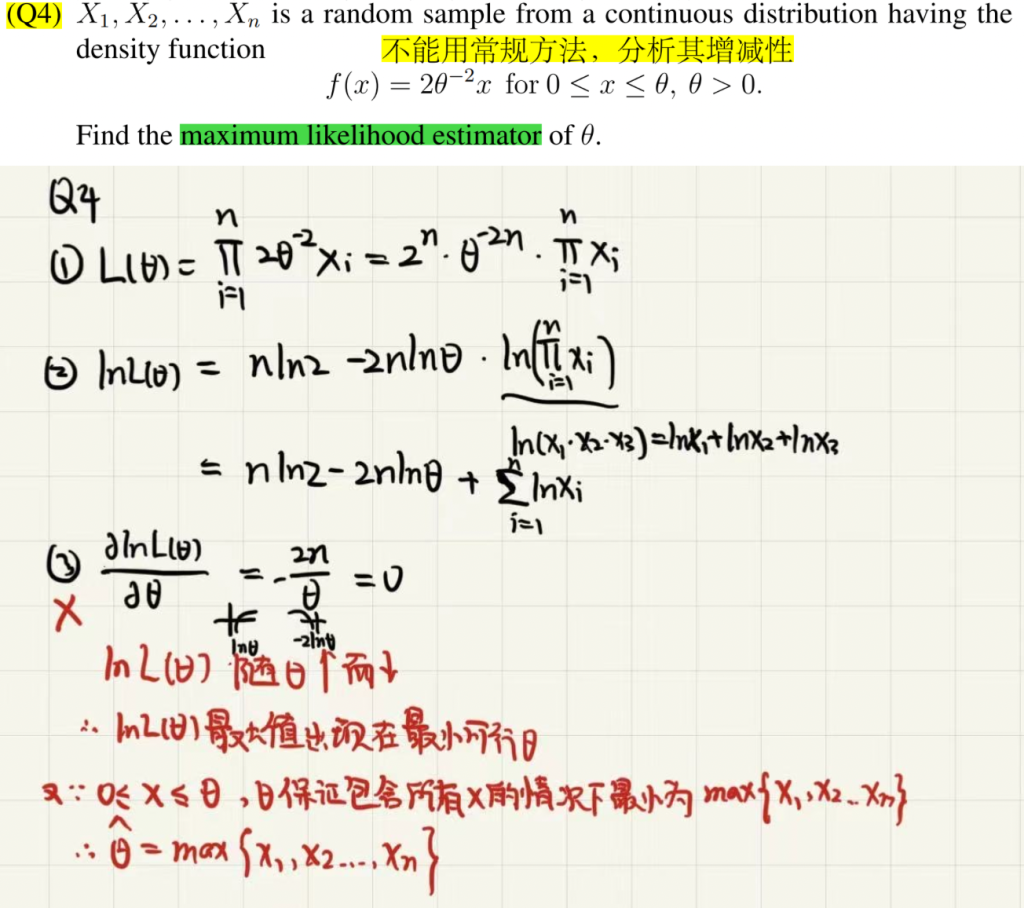 (Q4) X₁, X₂, . . . , Xₙ is a random sample from a continuous distribution having the
density function 不能用常规方法，分析其增减性
f(x) = 2θ⁻²x for 0 ≤ x ≤ θ, θ > 0.
Find the maximum likelihood estimator of θ.
Q4
① L(θ) = ∏ᵢ₌₁ⁿ 2θ⁻²xᵢ = 2ⁿ · θ⁻²ⁿ · ∏ᵢ₌₁ⁿ xᵢ
② lnL(θ) = nln2 -2nlnθ · ln(∏ᵢ₌₁ⁿ xᵢ)
ln(x₁·x₂·x₃)=lnx₁+lnx₂+lnx₃
= nln2 - 2nlnθ + ∑ᵢ₌₁ⁿ lnxᵢ
③ ∂lnL(θ)/∂θ = -2n/θ = 0
X
lnθ -2lnθ
lnL(θ) 随θ↑而↓
∴ lnL(θ)最大值出现在最小可行θ
又∵ 0≤x≤θ,θ保证包含所有x的情况下最小为max{x₁,x₂..xₙ}
∴ θ̂ = max{x₁,x₂...,xₙ}